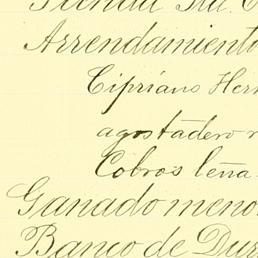 Tienda
Arrendamiento
Cipriano Her
agostadero
Cobros leña
Ganado meno
Banco de Dur